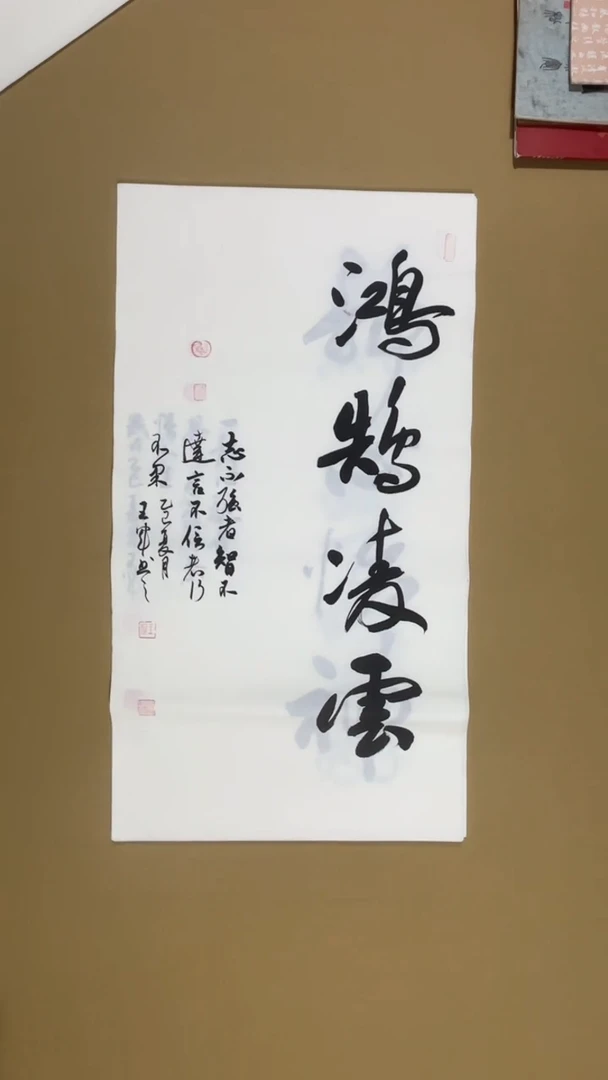 鴻鵠凌雲
志不强者智不
達言不信者行
不果 乙巳夏月
王軍书之